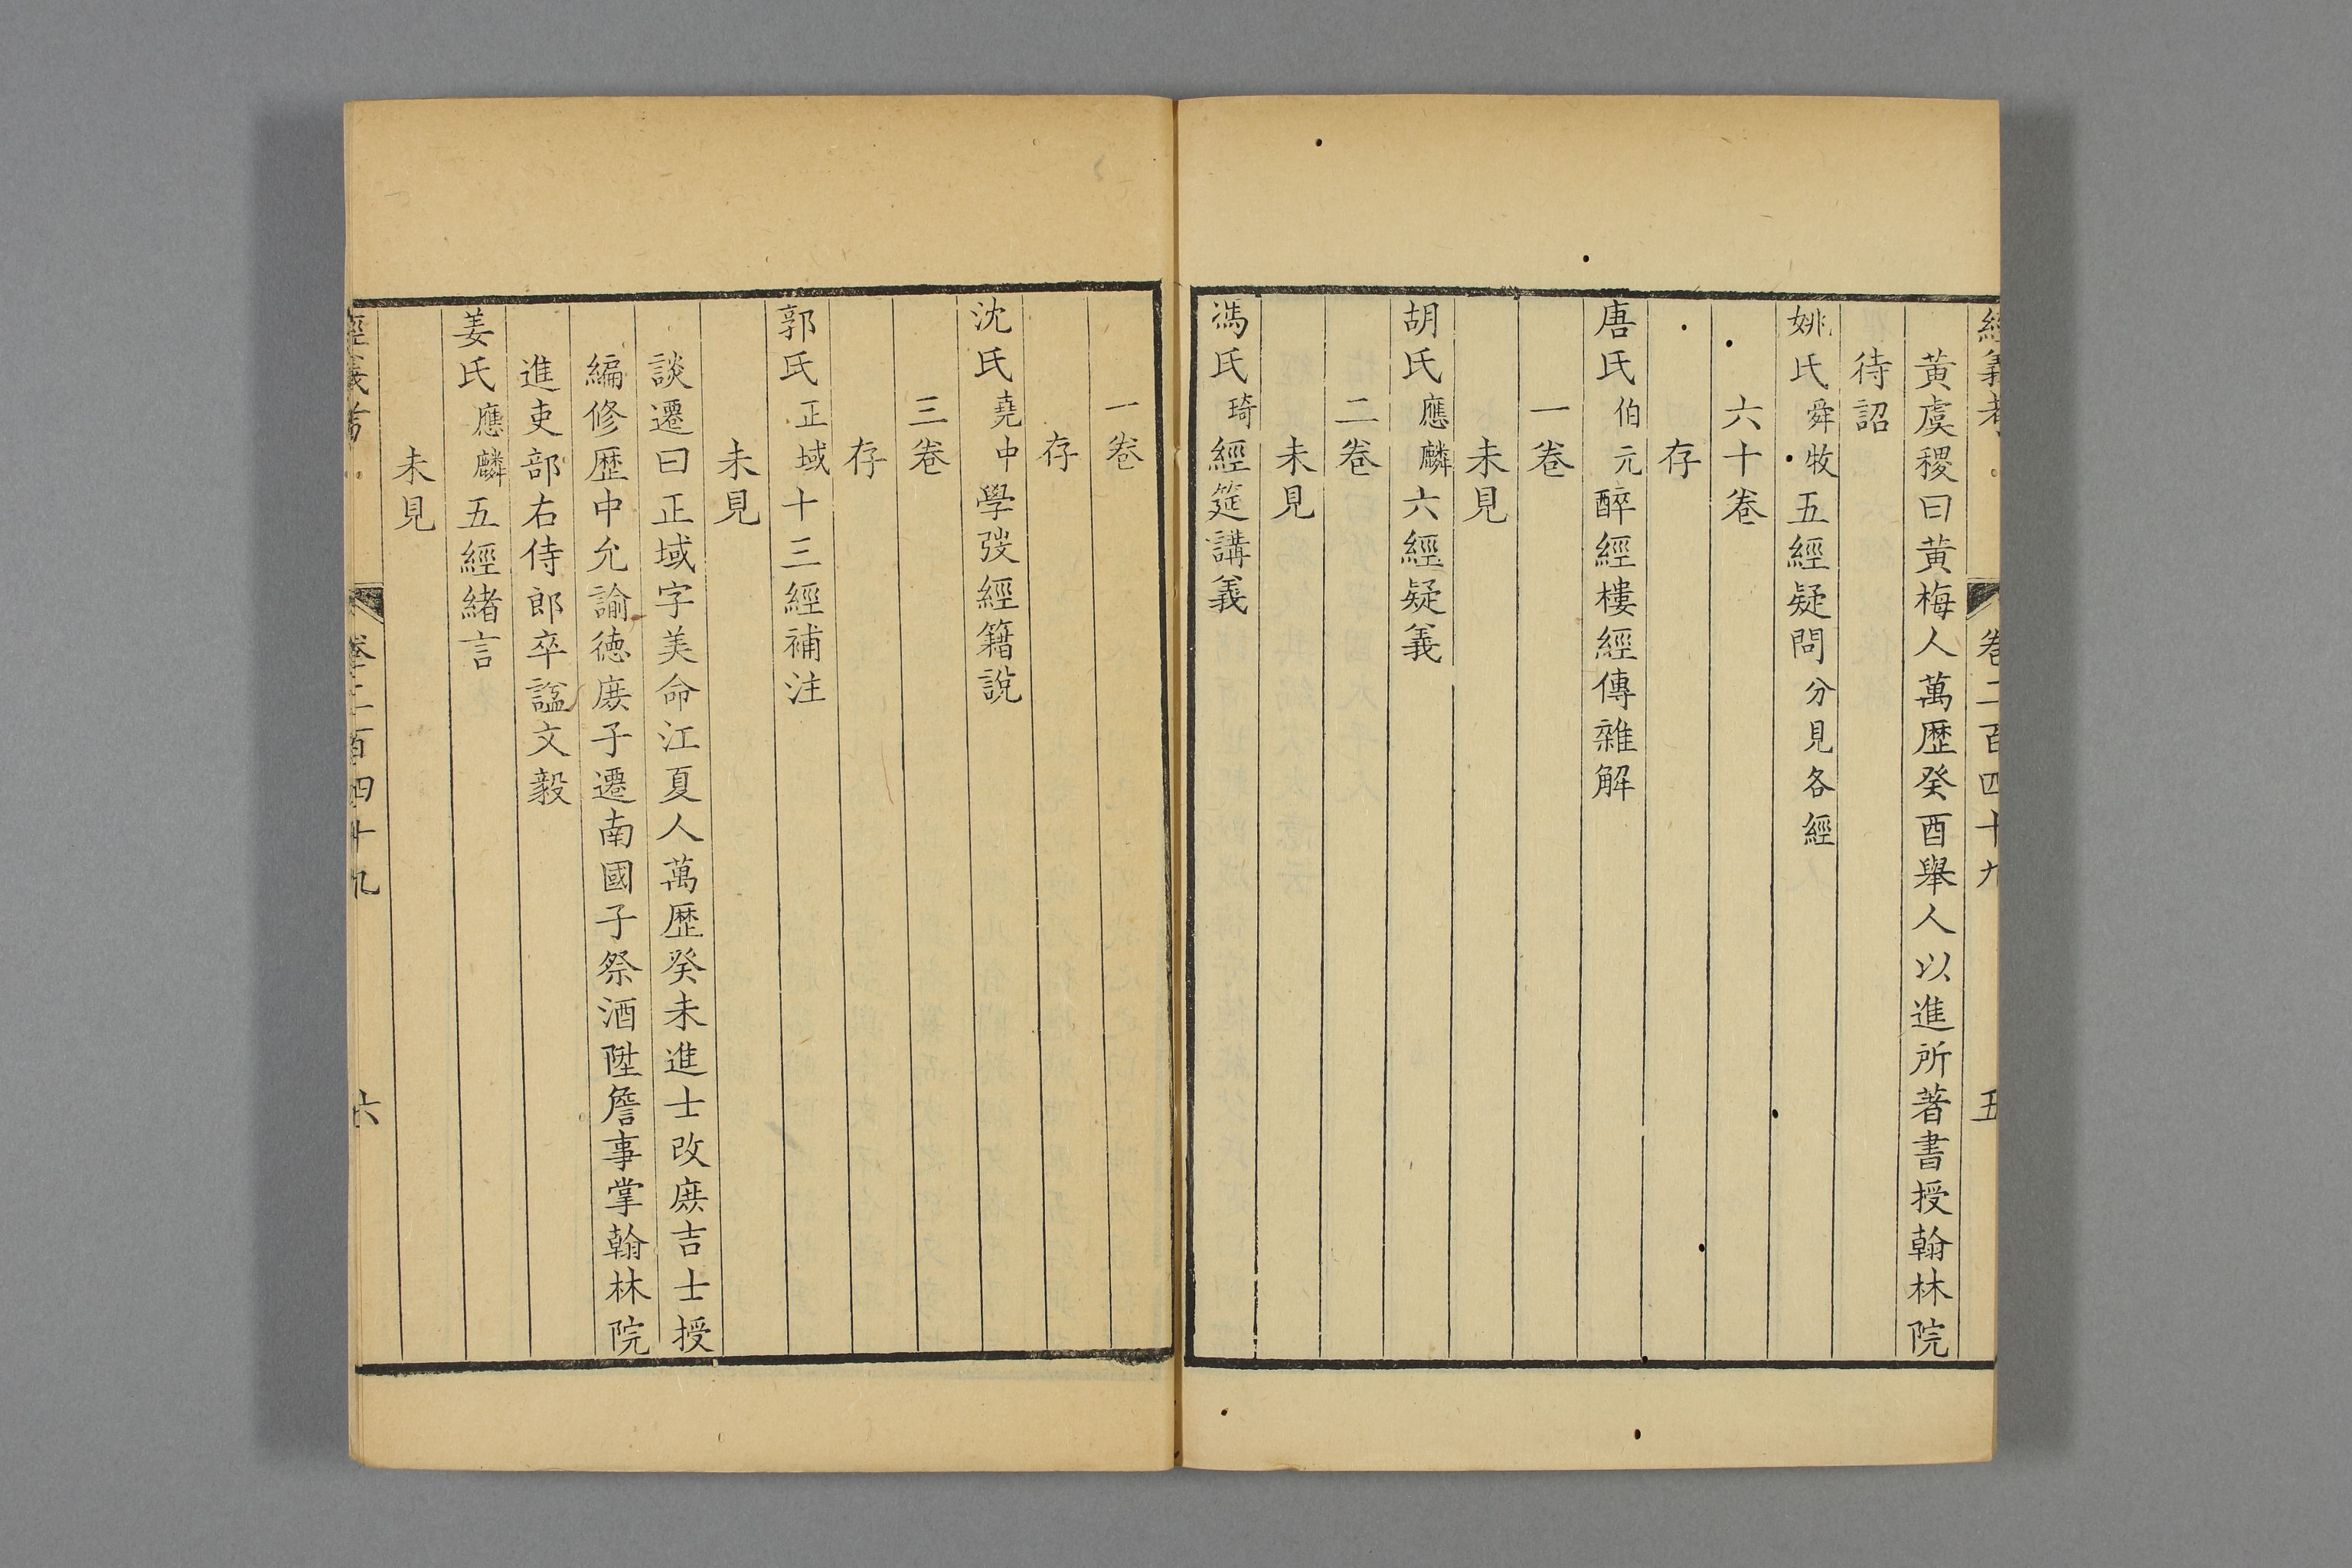 經義考
卷二百四十九
五
黃虞稷曰黃梅人萬歷癸酉舉人以進所著書授翰林院
待詔
姚氏舜牧五經疑問分見各經
六十卷
存
唐氏伯元醉經樓經傳雜解
一卷
未見
胡氏應麟六經疑義
二卷
未見
馮氏琦經筵講義
一卷
存
沈氏堯中學弢經籍說
三卷
存
郭氏正域十三經補注
未見
談遷曰正域字美命江夏人萬歷癸未進士改庶吉士授
編修歷中允諭德庶子遷南國子祭酒陞詹事掌翰林院
進吏部右侍郎卒諡文毅
姜氏應麟五經緒言
未見
經義考
卷二百四十九
六